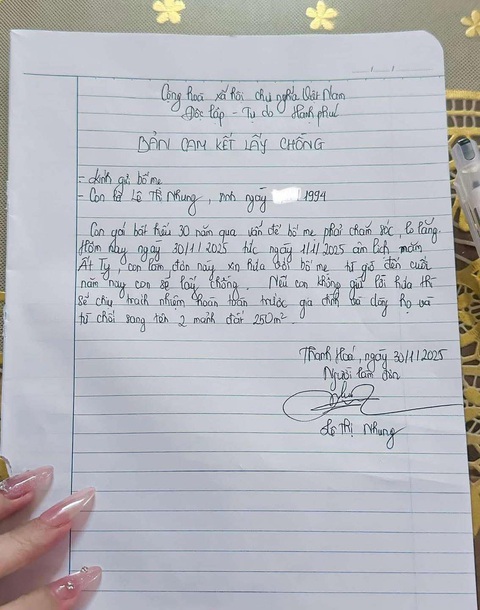 Cộng hoà xã hội chủ nghĩa Việt Nam
Độc lập - Tự do Hạnh phúc
BẢN CAM KẾT LẤY CHỒNG
- Kính gửi bố mẹ
- Con là Lê Thị Nhung, sinh ngày 1994
Con gái bất hiếu 30 năm qua vẫn để bố mẹ phải chăm sóc, lo lắng.
Hôm nay ngày 30/11/2025 tức ngày 11/11/2025 âm lịch năm
Ất Tỵ, con làm đơn này xin hứa với bố mẹ từ giờ đến cuối
năm nay con sẽ lấy chồng. Nếu con không giữ lời hứa thì
sẽ chịu trách nhiệm hoàn toàn trước gia đình và dòng họ và
từ chối sang tên 2 mảnh đất 250m².
Thanh Hoá, ngày 30/11/2025
Người làm đơn
Lê Thị Nhung